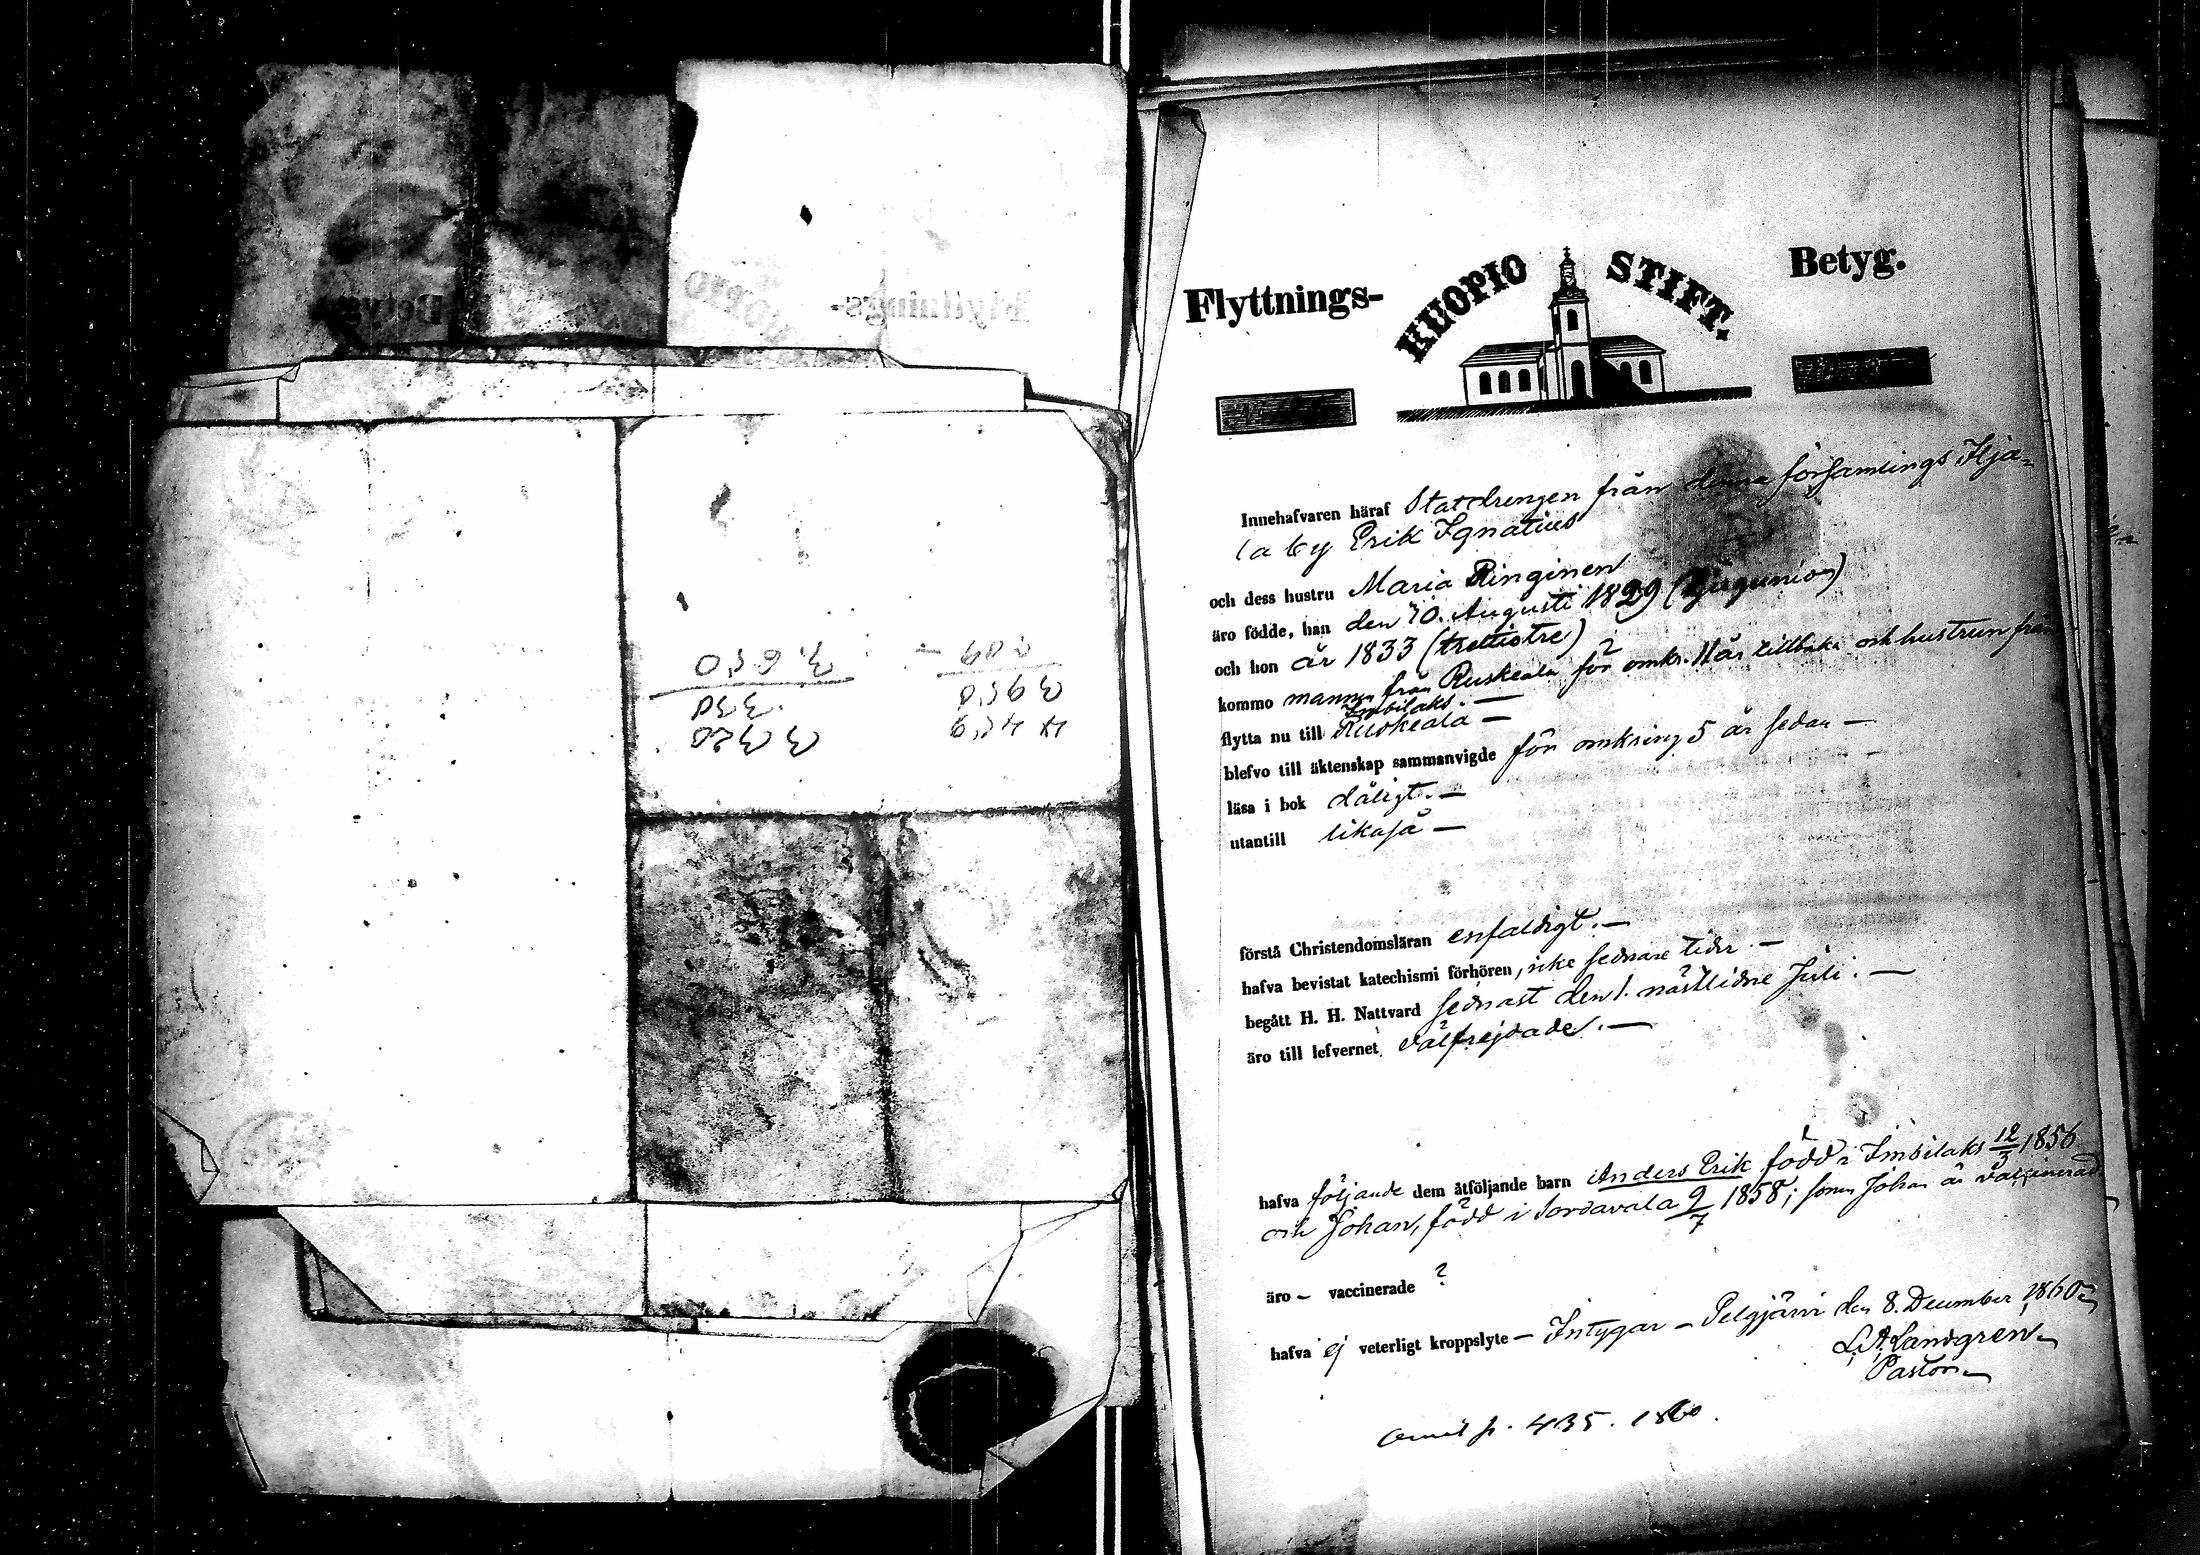 Flyttnings- KUOPIO STIFT. Betyg.
Innehafvaren häraf Statdrengen från denna församlings Ilja=
la by Erik Ignatius
och dess hustru Maria Ringinen
äro födde, han den 10. Augusti 1829 (tjugunio)
och hon år 1833 (trettiotre)
kommo mannen från Ruskeala för omkr. 11 år tillbaka och hustrun från
Imbilaks. —
flytta nu till Ruskeala —
blefvo till äktenskap sammanvigde för omkring 5 år sedan —
läsa i bok dåligt. —
utantill likaså —
förstå Christendomsläran enfaldigt. —
hafva bevistat katechismi förhören, icke sednare tider. —
begått H. H. Nattvard sednast den 1. nästlidne Juli. —
äro till lefvernet välfrejdade. —
hafva följande dem åtföljande barn Anders Erik född i Imbilaks 12/3 1856
och Johan, född i Sordavala 9/7 1858; sonen Johan är vaccinerad
äro — vaccinerade ?
hafva ej veterligt kroppslyte — Intygar — Pelgjärvi den 8. December 1860.
L. A. Landgren
Pastor
p. 435. 1860.
Flyttnings-
KUOPIO
Betyg.
3320
330
3,650
4459
3950
509